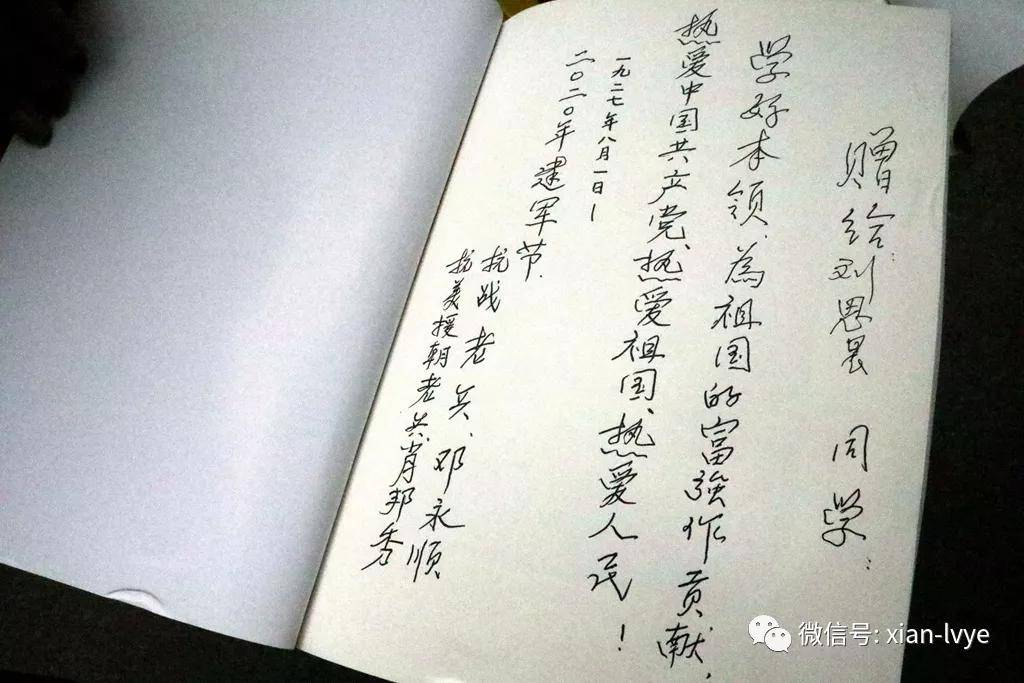 赠给刘思昊 同学:
学好本领,為祖国的富強作贡献,
热爱中国共产党、热爱祖国、热爱人民!
一九二七年八月一日—
二〇二〇年建军节.
抗战老兵、邓永顺
抗美援朝老兵肖邦秀
微信号: xian-lvye